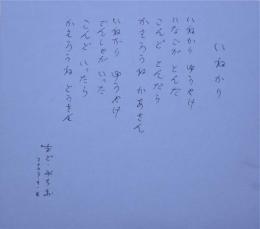 いねかり
いねかり ゆうやけ
いなごが とんだ
こんど とんだら
かえろうね かあさん
いねかり ゆうやけ
でんしゃが いった
こんど いったら
かえろうね とうさん
まど・みちお